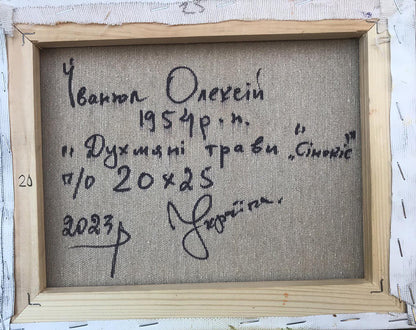 25
Іванюл Олексій
1954 р.н.
"Духмяні трави "Сінокіс"
п/о 20x25
20
2023р Україна.